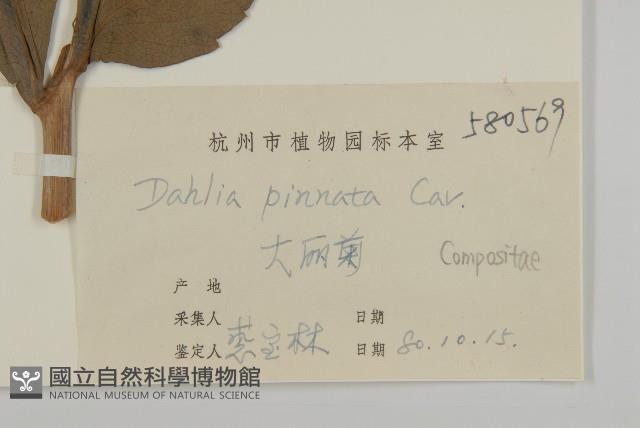 580569
杭州市植物园标本室
Dahlia pinnata Cav.
大丽菊
Compositae
产 地
采集人 日期
鉴定人 宝林 日期 80.10.15.
國立自然科學博物館
NATIONAL MUSEUM OF NATURAL SCIENCE